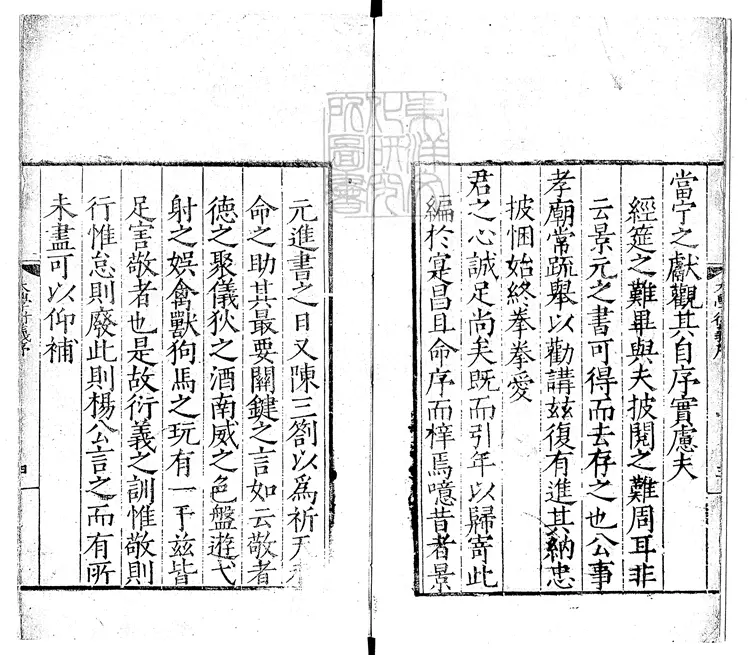 當宁之獻觀其自序實慮夫
經筵之難畢與夫披閱之難周耳非
云景元之書可得而去存之也公事
孝廟常疏舉以勸講兹復有進其納忠
披悃始終拳拳愛
君之心誠足尚矣既而引年以歸寄此
編於寔昌且命序而梓焉噫昔者景
元進書之日又陳三劄以爲祈天永
命之助其最要關鍵之言如云敬者
德之聚儀狄之酒南威之色盤遊弋
射之娛禽獸狗馬之玩有一于兹皆
足害敬者也是故衍義之訓惟敬則
行惟怠則廢此則楊公言之而有所
未盡可以仰補
大學衍義序
三
大學衍義序
四
東洋文化研究所圖書